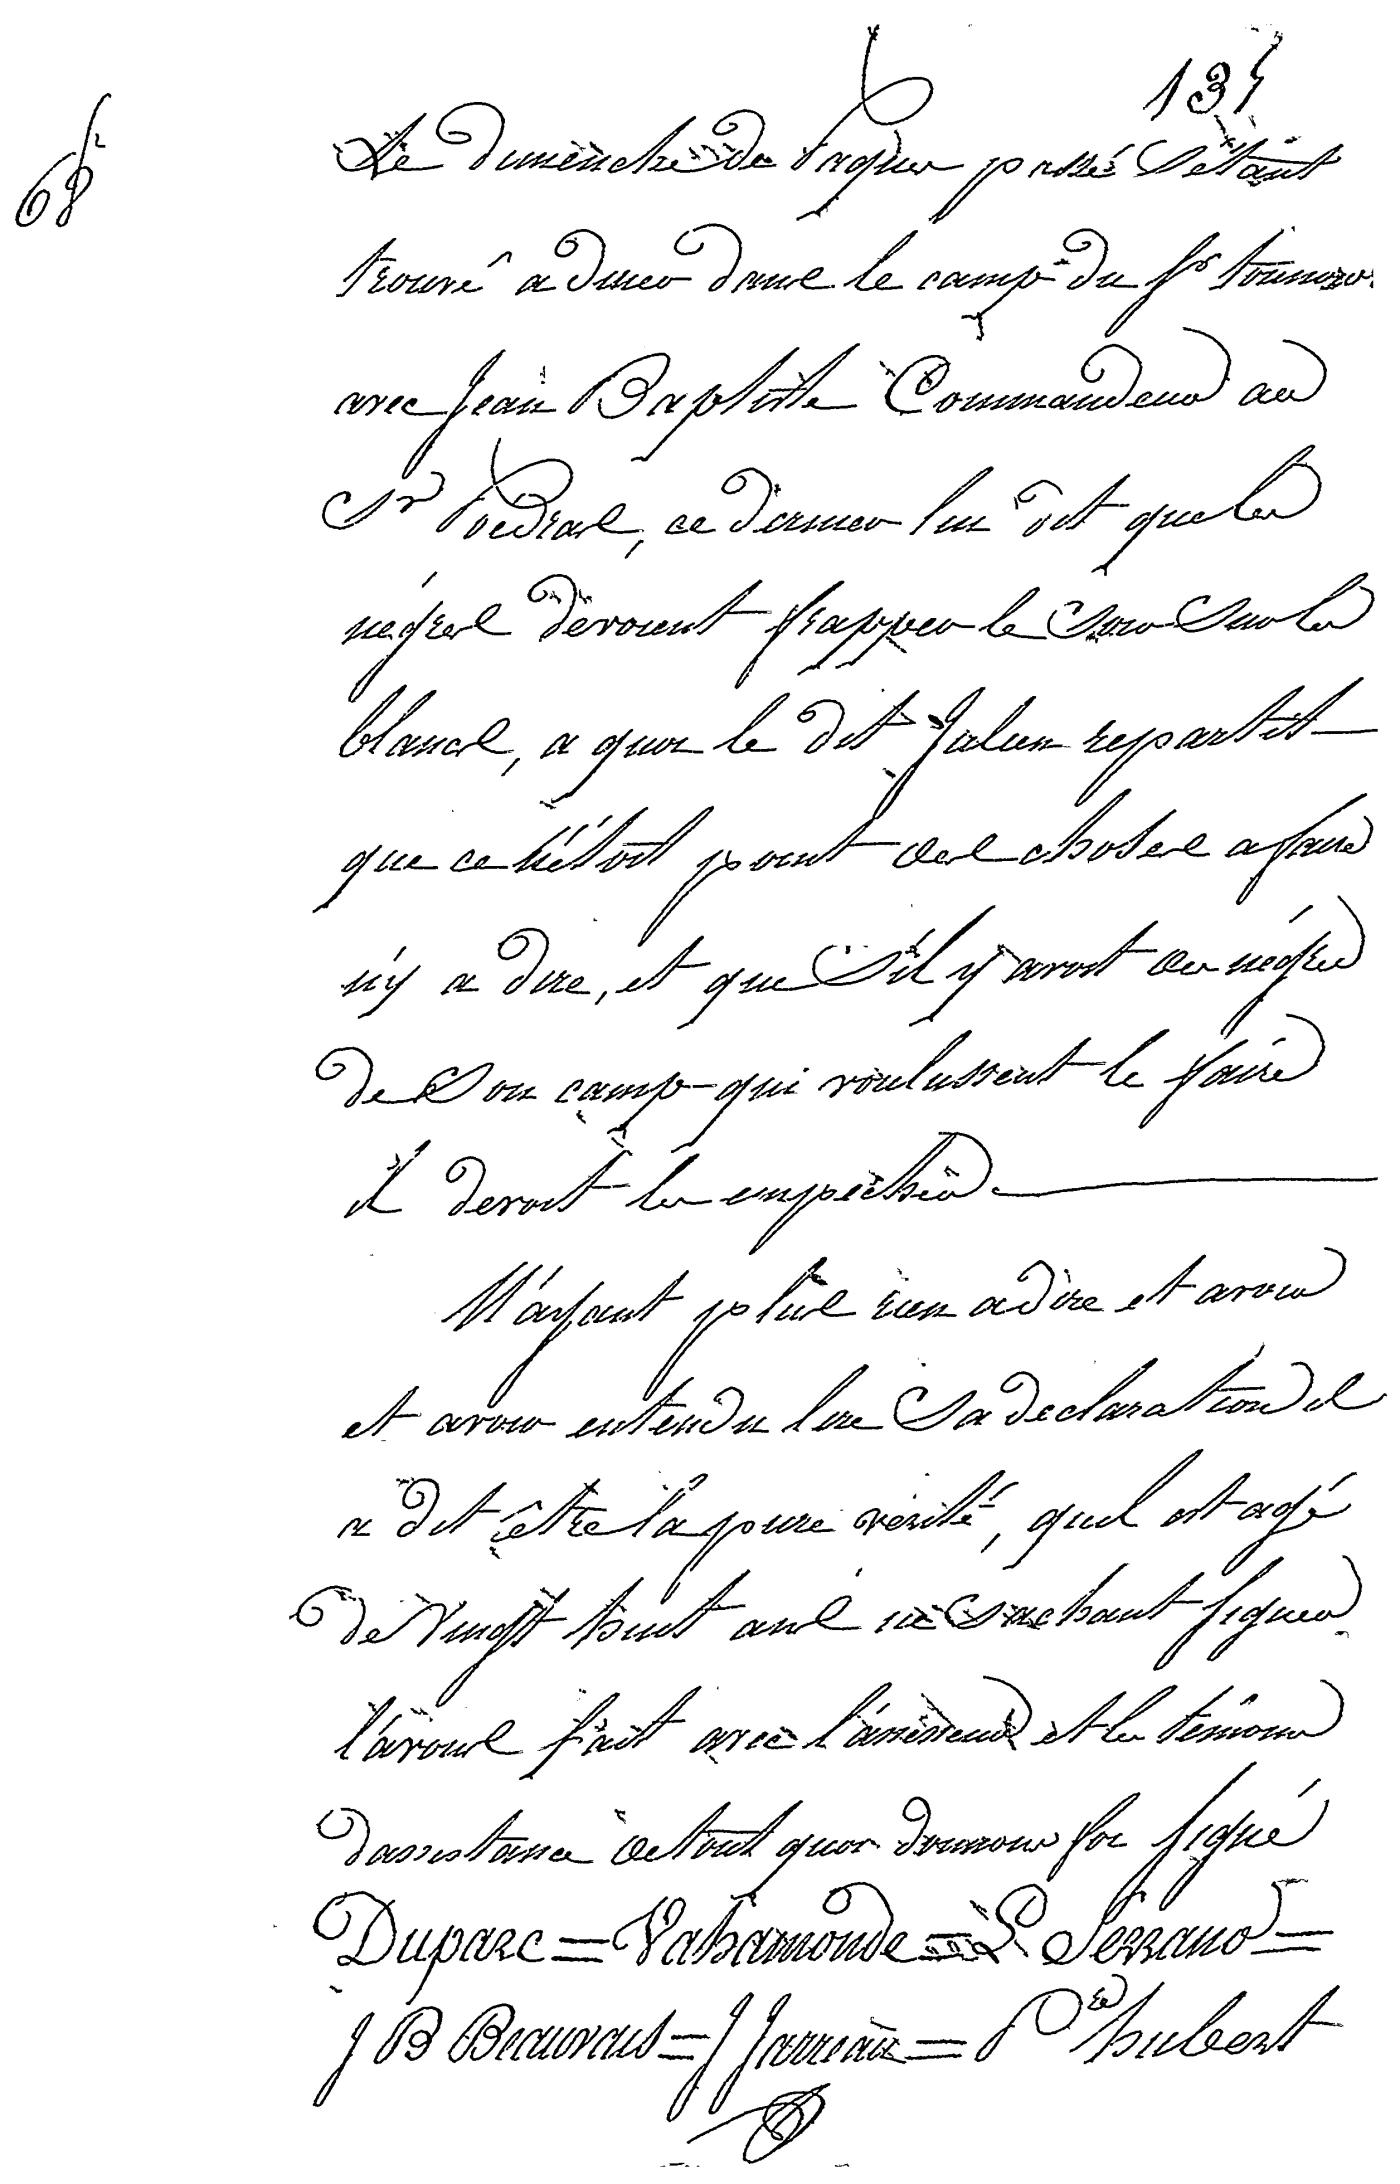 135
68
Le dimenche de Paques passé S'étant
trouvé a diner dans le camp du Sr tounoir
avec Jean Baptiste Commandeur au
Sr Poedras, ce dernier lui dit que les
négres devoient frapper le Soir Sur les
blancs, a quoi le dit Julien repartit
que ce n'étoit point des choses a faire
n'y a dire, et que S'il y avoit des négres
de Son camp qui voulussent le faire
il devoit les empecher.
N'ayant plus rien a dire et avoir
et avoir entendu lire Sa declaration il
a dit être la pure verité, qu'il est agé
de Vingt huit ans ne Sachant signer
l'avons fait avec l'assesseur et les temoins
dassistance de tout quoi donnons foi signé
Duparc = Vahamonde = L Serrano =
J B Beauvais = J Jarreau = Pre hubert